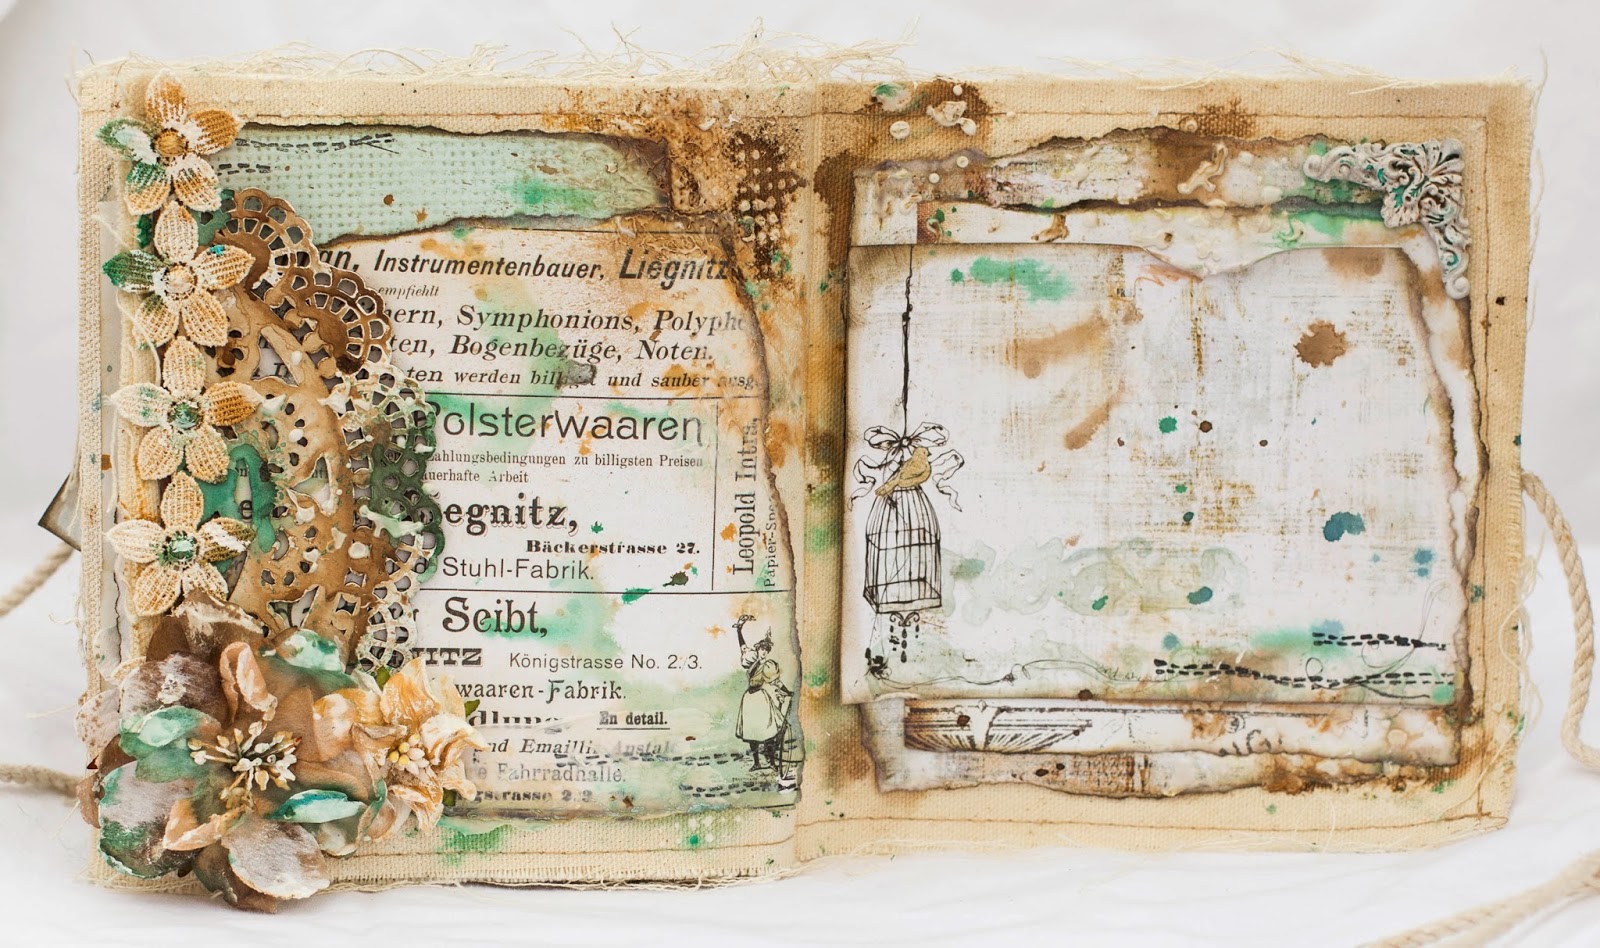 Instrumentenbauer, Liegnitz
empfiehlt
Symphonions, Polypho
ten, Bogenbezüge, Noten.
ten werden billigst und sauber ausg
Polsterwaaren
ahlungsbedingungen zu billigsten Preisen
auerhafte Arbeit
egnitz,
Bäckerstrasse 27.
Stuhl-Fabrik.
Leopold Intra,
Papier-Spe
Seibt,
NITZ Königstrasse No. 2/3.
waaren-Fabrik.
dlung En detail.
und Emaillir-Anstalt
re Fahrradhalle.
rstrasse 2/3